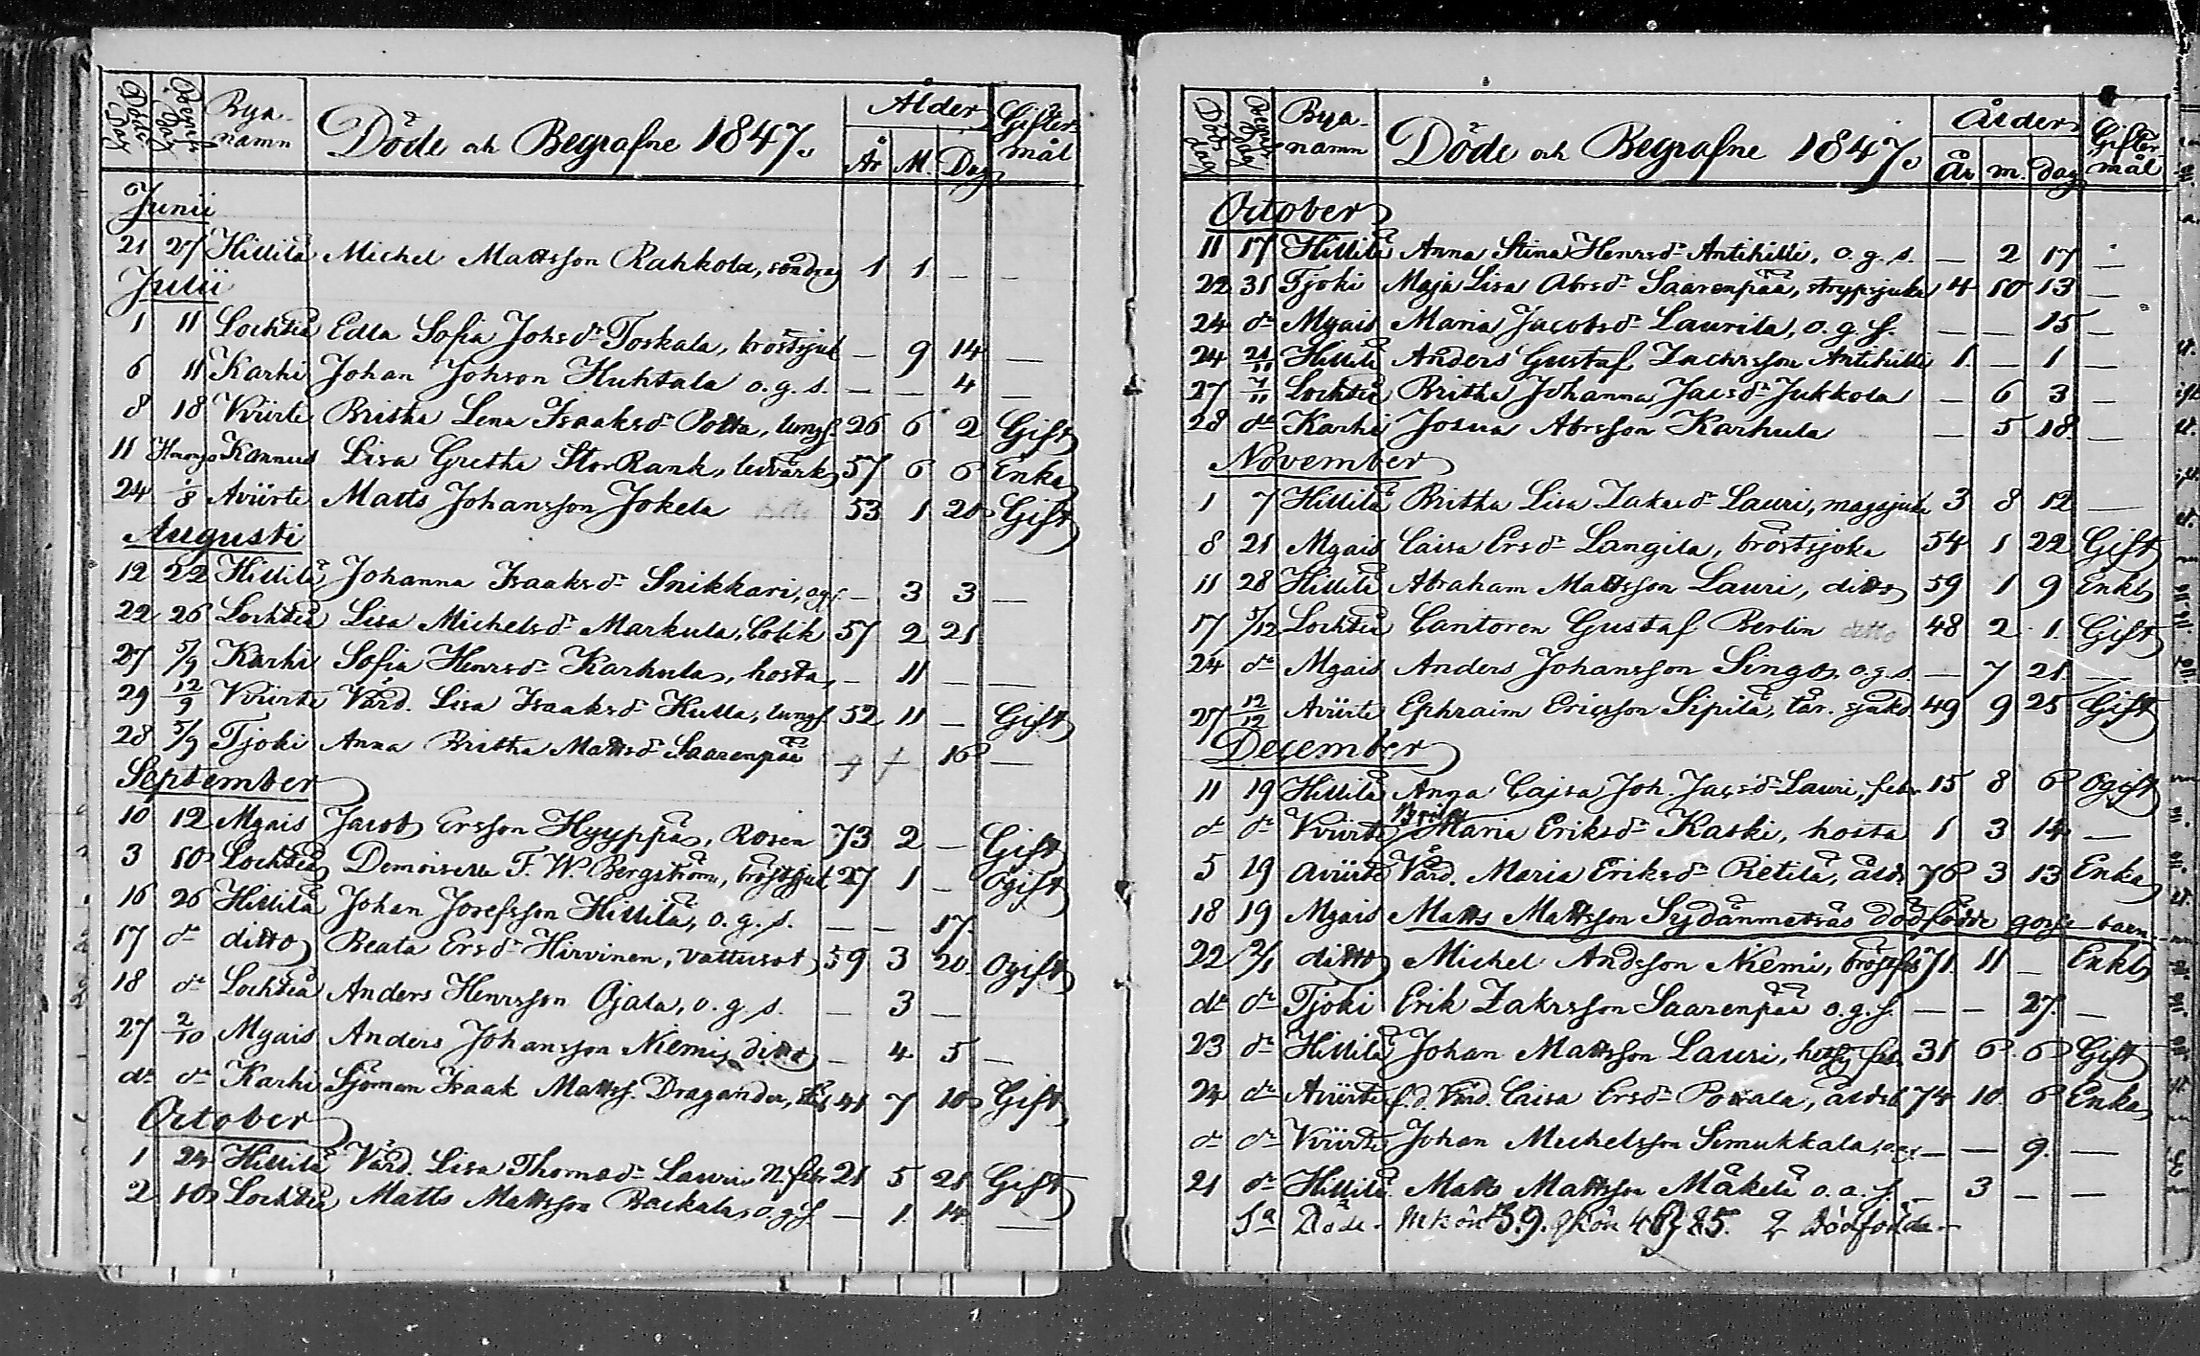 Döde Dag Begrafn. Dag Bya-namn Döde och Begrafne 1847. Ålder År M. Dag Giftermål
Junii
21 27 Hillilä Michel Mattsson Rahkola, söndrag 1 1 — —
Julii
1 11 Lochteå Edla Sofia Johsdr Toskala, bröstsjuk — 9 14 —
6 11 Karhi Johan Johsson Huhtala o.g.s. — — 4 —
8 18 Yviirte Britha Lena Isaaksdr Potta, lungs. 26 6 2 Gift
11 Kannus Lisa Gretha StorRank, ledvärk 57 6 6 Enka
24 1/8 Aviirte Matts Johansson Jokela ditto 53 1 20 Gift
Augusti
12 22 Hillilä Johanna Isaaksdr Snikkari, ogs. — 3 3 —
22 26 Lochteå Lisa Michelsdr Markula, Colik 57 2 21
27 5/9 Karhi Sofia Henrsdr Karhula, hosta, — 11 — —
29 12/9 Yviirte Värd. Lisa Isaaksdr Hulla, lungs. 52 11 — Gift
28 5/9 Tjoki Anna Britha Mattsdr Saarenpää 16 —
September
10 12 Mgais Jacob Ersson Hyyppä, Rosen 73 2 — Gift
3 10 Lochteå Demoiselle F. W. Bergström, bröstsjuk 27 1 — Ogift
16 26 Hillilä Johan Josefsson Hillilä, o.g.s. — — 17.
17 dr ditto Beata Ersdr Hirvinen, vattusot 59 3 20 Ogift
18 dr Lochteå Anders Henrsson Ojala, o.g.s. — 3 —
27 2/10 Mgais Anders Johansson Niemi, ditto — 4 5 —
dr dr Karhi Sjöman Isaak Mattss. Dragander, 41 7 10 Gift
October
1 24 Hillilä Värd. Lisa Thomasdr Lauri N. feber 21 5 21 Gift
2 10 Lochteå Matts Mattsson Backala, o.g.s. — 1 14 —
Död dag Begrafn. dag Bya-namn Döde och Begrafne 1847. Ålder År m. dag Giftermål
October
11 17 Hillilä Anna Stina Henrsdr Antihilli, o.g.s. — 2 17 —
22 31 Tjoki Maja Lisa Abrsdr Saarenpää, strypsjuka 4 10 13 —
24 dr Mgais Maria Jacobsdr Laurila, o.g.s. — — 15 —
24 21/11 Hillilä Anders Gustaf Zachrsson Antihilli 1 — 1 —
27 7/11 Lochteå Britha Johanna Jacsdr Jukkola — 6 3 —
28 dr Karhi Josua Abrsson Karhula — 5 18 —
November
1 7 Hillilä Britha Lisa Zaksdr Lauri, magsjuka 3 8 12 —
8 21 Mgais Caisa Ersdr Langila, bröstsjuka 54 1 22 Gift
11 28 Hillilä Abraham Mattsson Lauri, ditto 59 1 9 Enkl
17 5/12 Lochteå Cantoren Gustaf Berlin ditto 48 2 1 Gift
24 dr Mgais Anders Johansson Singo, o.g.s. — 7 21 —
27 12/12 Aviirte Ephraim Ericsson Sipilä, tär. sjukd. 49 9 25 Gift
December
11 19 Hillilä Anna Cajsa Joh. Jacsdr Lauri, feber 15 8 6 Ogift
dr dr Yviirte Brita Maria Eriksdr Kaski, hosta 1 3 14 —
5 19 Aviirte Vård. Maria Eriksdr Rietilä, ålds. 76 3 13 Enka
18 19 Mgais Matts Mattsson Sydänmetsäs dödfödde gosse-barn
22 2/1 ditto Michel Andsson Niemi, bröstsj. 71 11 — Enkl
dr dr Tjoki Erik Zakrsson Saarenpää o.g.s. — — 27. —
23 dr Hillilä Johan Mattsson Lauri, 31 6 6 Gift
24 dr Aviirte f.d. Vård. Caisa Ersdr Pollala, ålds. 74 10 6 Enka
dr dr Yviirte Johan Michelsson Simukkala, o.gs — — 9. —
21 dr Hillilä Matts Mattsson Mäkelä o.a.s. — 3 — —
Sa Döde. Mkön 39. qkön 46 = 85. 2 dödfödda —